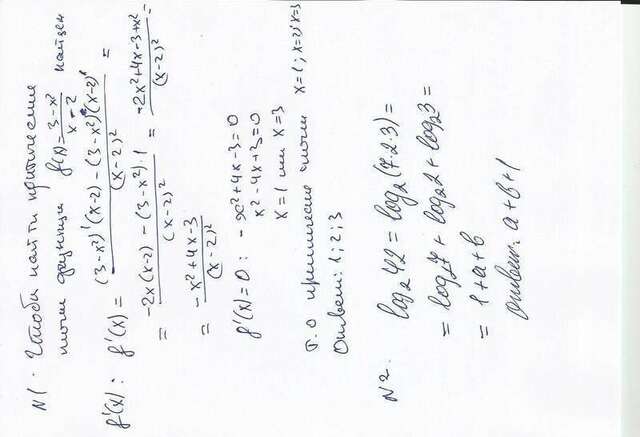 N1. Чтобы найти критические
точки функции f(x) = (3-x²)/(x-2) найдем
f'(x): f'(x) = ((3-x²)'(x-2) - (3-x²)(x-2)')/(x-2)² =
= (-2x(x-2) - (3-x²)·1)/(x-2)² = (-2x²+4x-3+x²)/(x-2)² =
= (-x²+4x-3)/(x-2)²
f'(x)=0: -x²+4x-3=0
x²-4x+3=0
x=1 или x=3
Т.о критические точки x=1; x=2; x=3
Ответ: 1; 2; 3
N2. log₂42 = log₂(7·2·3) =
= log₂7 + log₂2 + log₂3 =
= 1+a+b
Ответ: a+b+1